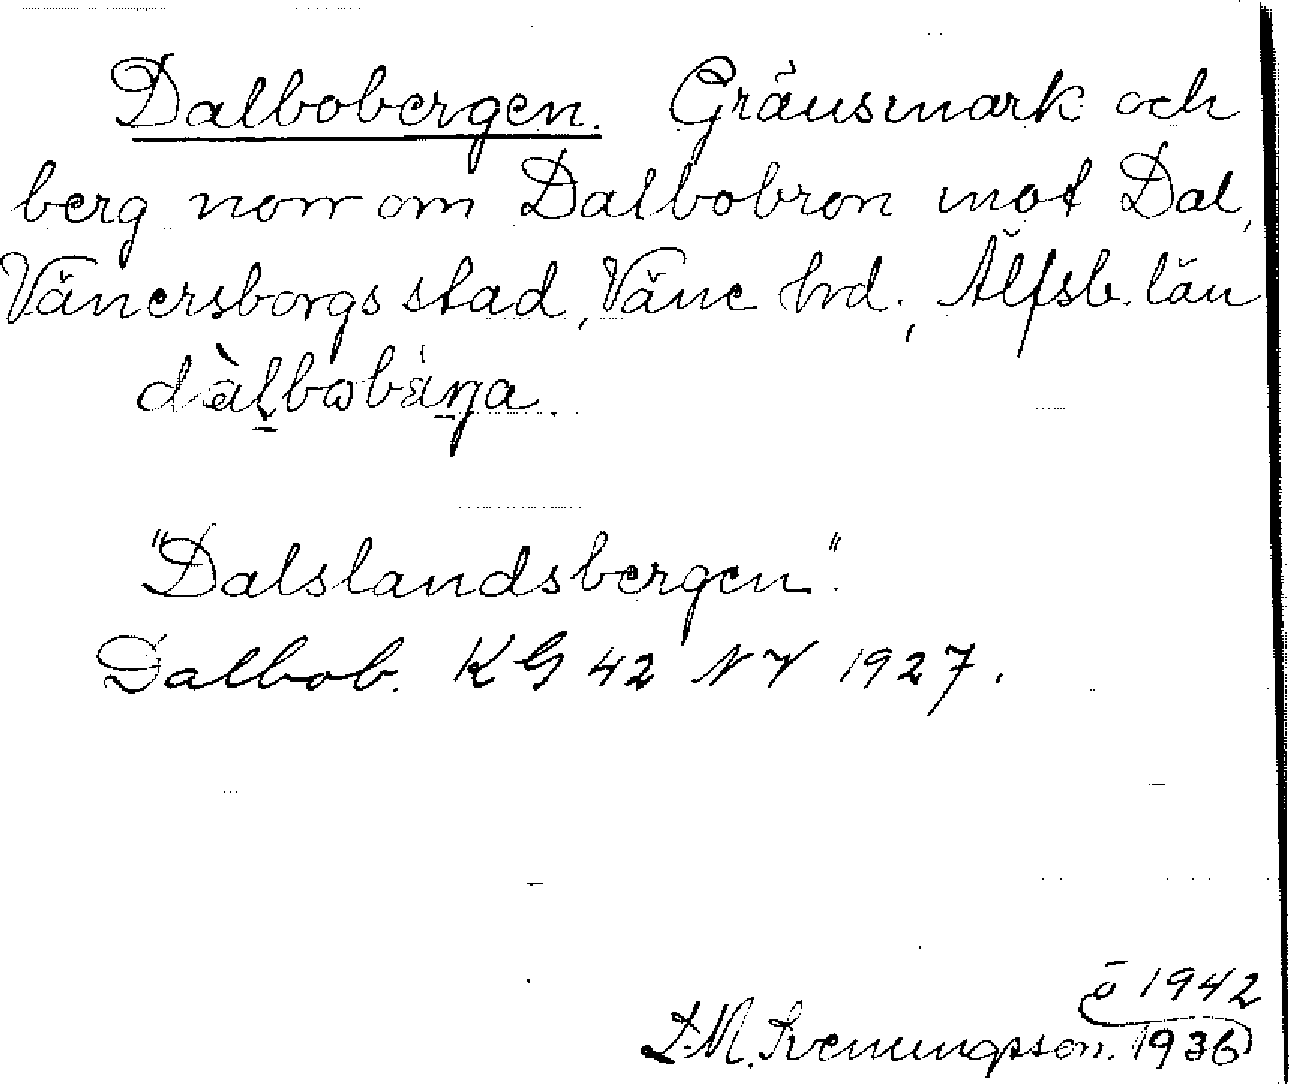 Dalbobergen. Gränsmark och
berg norr om Dalbobron mot Dal,
Vänersborgs stad, Väne hd., Älfsb. län
dàlbobäŋa.
"Dalslandsbergen".
Dalbob. KG 42 NV 1927.
ö 1942
1936